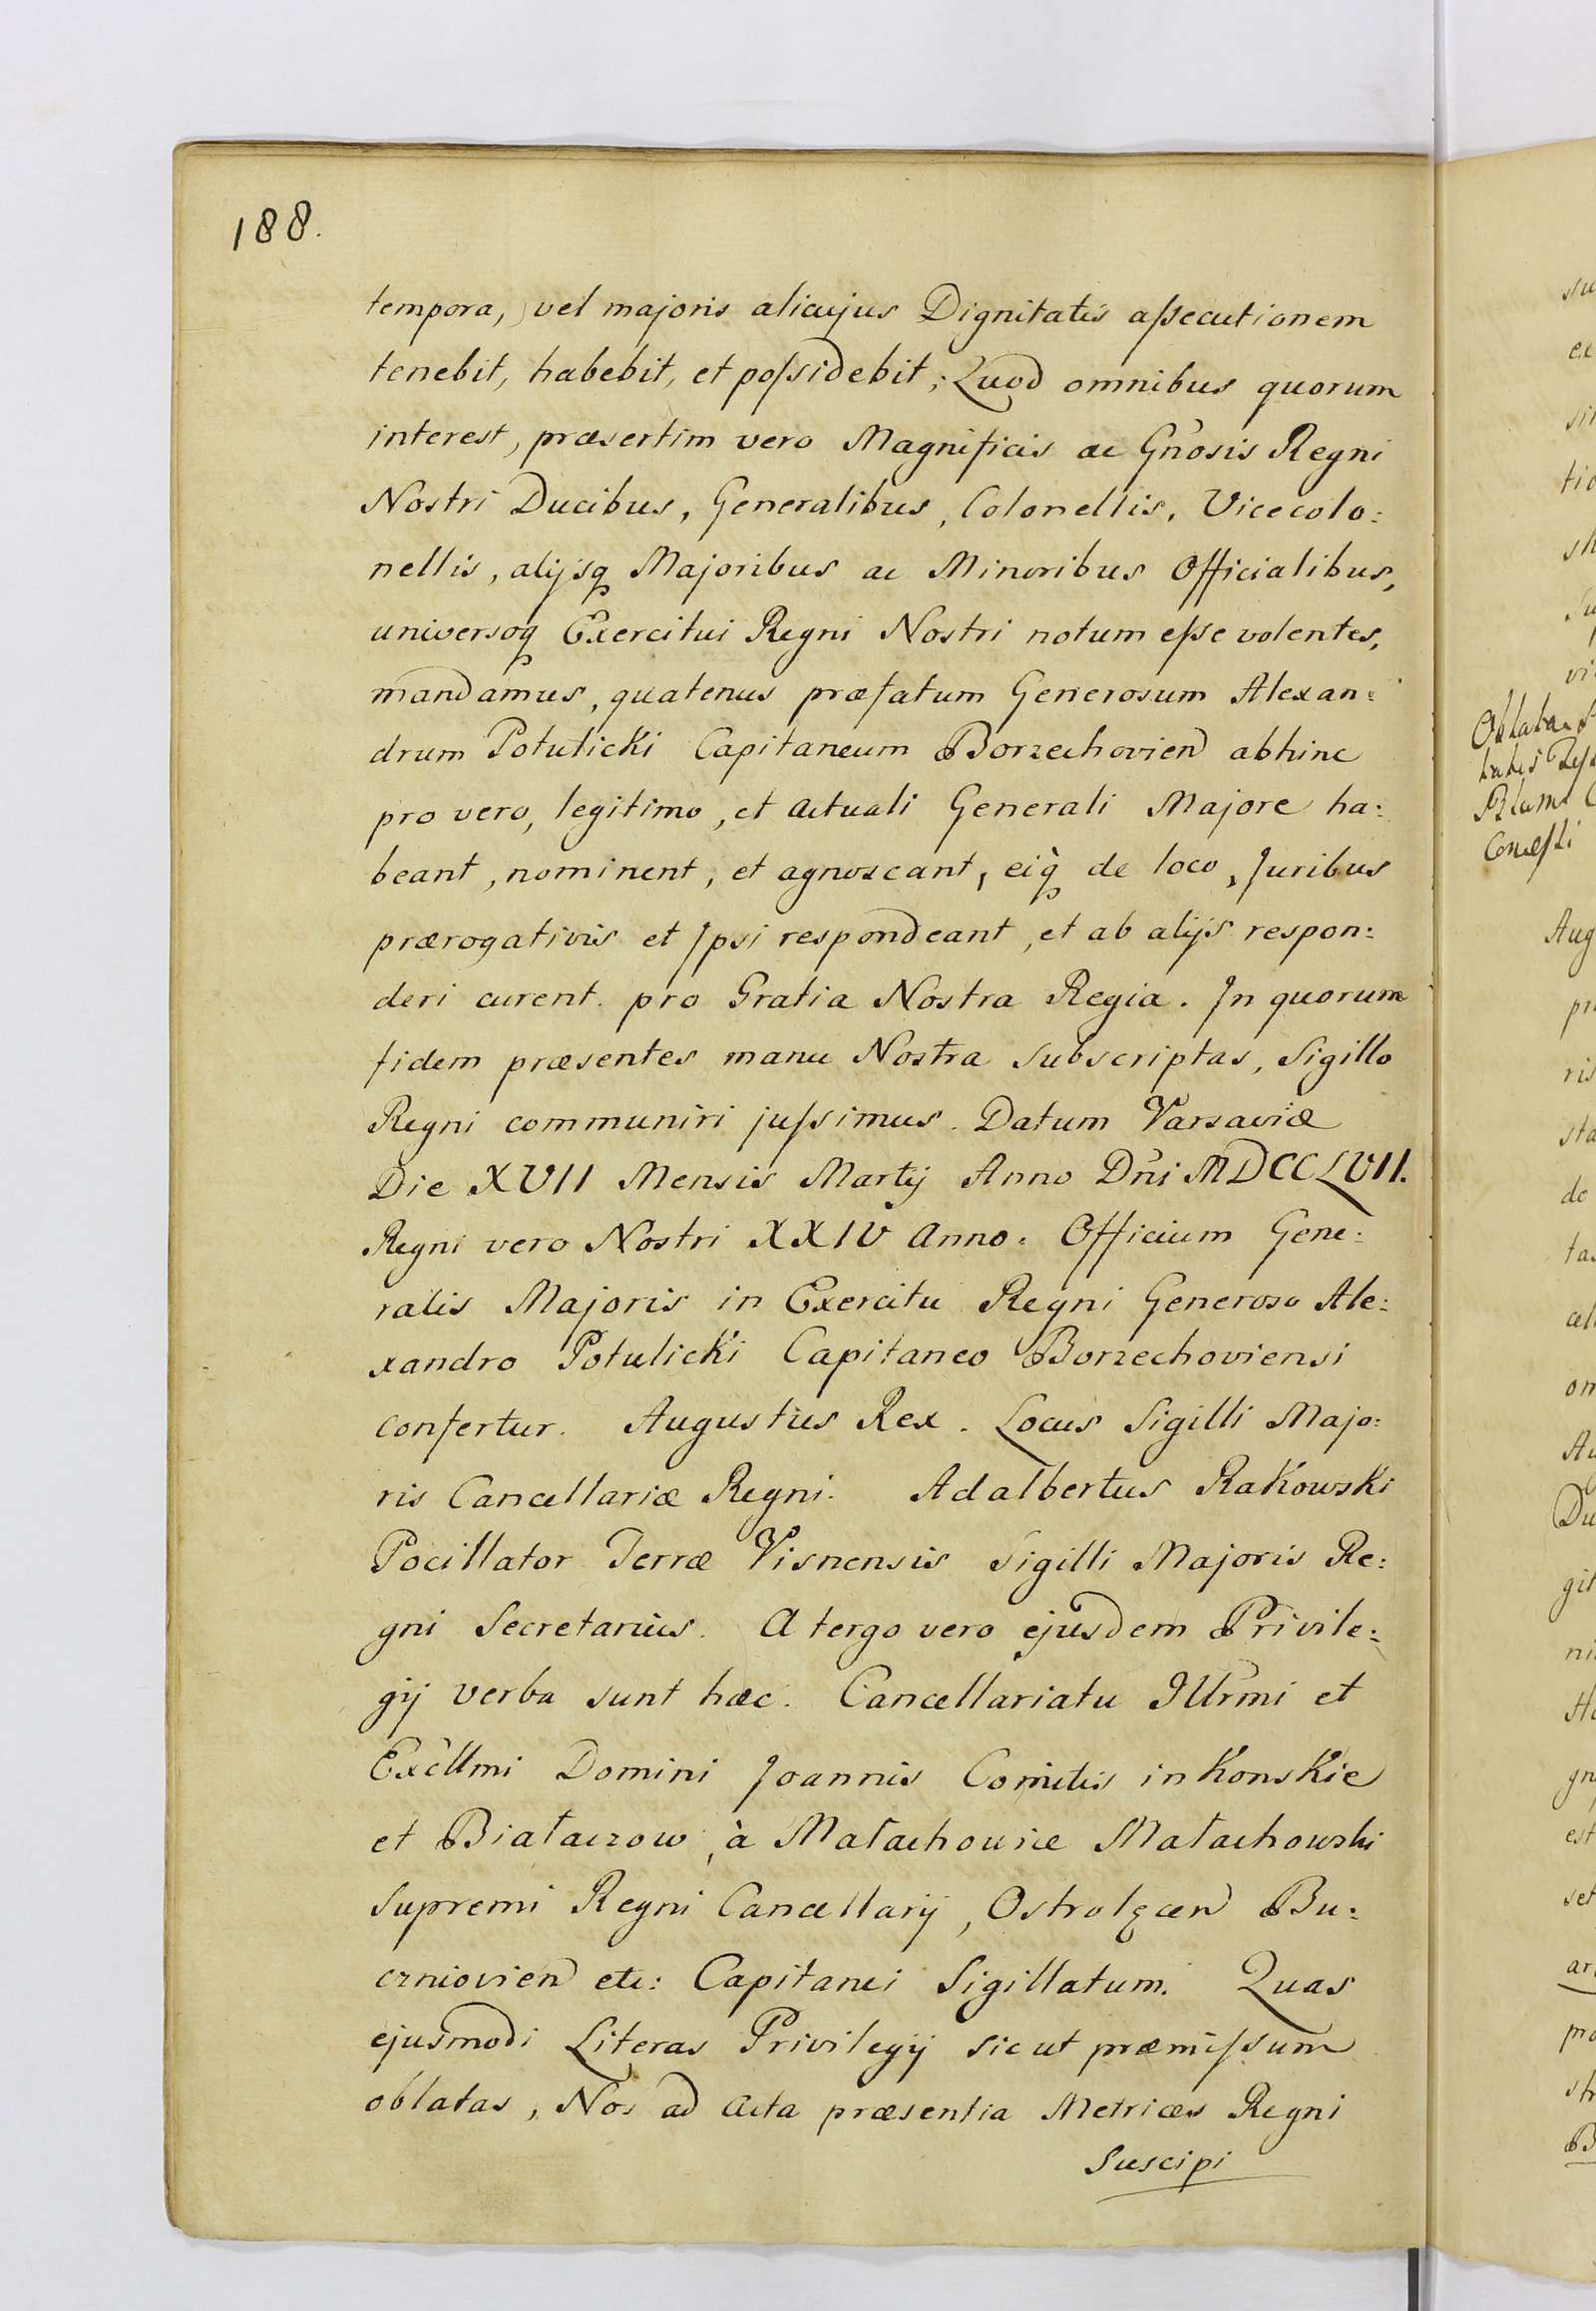 188.
tempora, vel majoris alicujus Dignitatis aſsecutionem
tenebit, habebit, et poſsidebit; Quod omnibus quorum
interest, præsertim vero Magnificis ac Gñosis Regni
Nostri Ducibus, Generalibus, Colonellis, Vicecolo:
nellis, alijsq Majoribus ac Minoribus Officialibus,
universoq Exercitui Regni Nostri notum eſse volentes,
mandamus, quatenus præfatum Generosum Alexan:
drum Potulicki Capitaneum Borzechovien abhinc
pro vero, legitimo, et actuali Generali Majore ha:
beant, nominent, et agnoscant, eiq̀ de loco, Juribus
prærogativis et Ipsi respondeant, et ab alijs respon:
deri curent. pro Gratia Nostra Regia. In quorum
fidem præsentes manu Nostra subscriptas, Sigillo
Regni communiri juſsimus. Datum Varsaviæ
Die XVII Mensis Martij Anno Dñi MDCCLVII.
Regni vero Nostri XXIV Anno. Officium Gene:
ralis Majoris in Exercitu Regni Generoso Ale:
xandro Potulicki Capitaneo Borzechoviensi
confertur. Augustus Rex. Locus Sigilli Majo:
ris Cancellariæ Regni. Adalbertus Rakowski
Pocillator Terræ Visnensis Sigilli Majoris Re:
gni Secretarius. A tergo vero ejusdem Privile:
gij verba sunt hæc. Cancellariatu Illr̃mi et
Excllmi Domini Joannis Comitis in Konskie
et Białaczow, à Małachowice Małachowski
Supremi Regni Cancellarij, Ostrolęcen Bu:
czniovien etc: Capitanei Sigillatum. Quas
ejusmodi Literas Privilegij sicut præmiſsum
oblatas, Nos ad Acta præsentia Metrices Regni
Suscipi